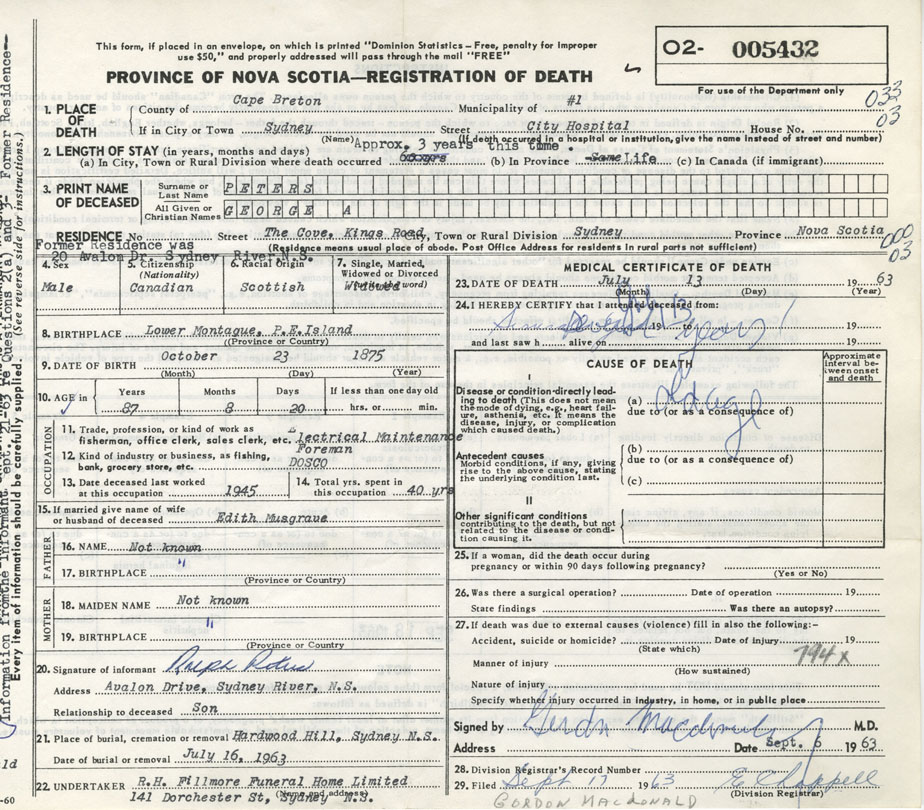 This form, if placed in an envelope, on which is printed "Dominion Statistics – Free, penalty for improper
use $50," and properly addressed will pass through the mail "FREE"
PROVINCE OF NOVA SCOTIA—REGISTRATION OF DEATH
O2- 005432
For use of the Department only
033
03
1. PLACE OF DEATH
County of Cape Breton Municipality of #1
If in City or Town Sydney Street City Hospital House No.
(Name) (If death occurred in a hospital or institution, give the name instead of street and number)
2. LENGTH OF STAY (in years, months and days) Approx. 3 years this time.
(a) In City, Town or Rural Division where death occurred (b) In Province Life (c) In Canada (if immigrant)
3. PRINT NAME OF DECEASED
Surname or Last Name PETERS
All Given or Christian Names GEORGE A
RESIDENCE No. Street The Cove, Kings Road, City, Town or Rural Division Sydney Province Nova Scotia
000
03
Former Residence was (Residence means usual place of abode. Post Office Address for residents in rural parts not sufficient)
20 Avalon Dr. Sydney River N.S.
4. Sex Male
5. Citizenship (Nationality) Canadian
6. Racial Origin Scottish
7. Single, Married, Widowed or Divorced Widowed
8. BIRTHPLACE Lower Montague, P.E.Island
(Province or Country)
9. DATE OF BIRTH October 23 1875
(Month) (Day) (Year)
10. AGE in Years 87 Months 8 Days 20 If less than one day old hrs. or min.
OCCUPATION
11. Trade, profession, or kind of work as fisherman, office clerk, sales clerk, etc. Electrical Maintenance Foreman
12. Kind of industry or business, as fishing, bank, grocery store, etc. DOSCO
13. Date deceased last worked at this occupation 1945
14. Total yrs. spent in this occupation 40 yrs
15. If married give name of wife or husband of deceased Edith Musgrave
FATHER
16. NAME Not known
17. BIRTHPLACE "
(Province or Country)
MOTHER
18. MAIDEN NAME Not known
19. BIRTHPLACE "
(Province or Country)
20. Signature of informant Ralph Peters
Address Avalon Drive, Sydney River, N.S.
Relationship to deceased Son
21. Place of burial, cremation or removal Hardwood Hill, Sydney N.S.
Date of burial or removal July 16, 1963
22. UNDERTAKER R.H. Fillmore Funeral Home Limited
141 Dorchester St, Sydney N.S.
(Name and address)
MEDICAL CERTIFICATE OF DEATH
23. DATE OF DEATH July 13 19 63
(Month) (Day) (Year)
24. I HEREBY CERTIFY that I attended deceased from:
19 to 19
and last saw h alive on 19
CAUSE OF DEATH
Approximate interval between onset and death
I
Disease or condition directly leading to death (This does not mean the mode of dying, e.g., heart failure, asthenia, etc. It means the disease, injury, or complication which caused death.)
(a) Old age
due to (or as a consequence of)
Antecedent causes
Morbid conditions, if any, giving rise to the above cause, stating the underlying condition last.
(b)
due to (or as a consequence of)
(c)
II
Other significant conditions
contributing to the death, but not related to the disease or condition causing it.
25. If a woman, did the death occur during pregnancy or within 90 days following pregnancy?
(Yes or No)
26. Was there a surgical operation? Date of operation 19
State findings Was there an autopsy?
27. If death was due to external causes (violence) fill in also the following:-
Accident, suicide or homicide? Date of injury 19
(State which)
794x
Manner of injury
(How sustained)
Nature of injury
Specify whether injury occurred in industry, in home, or in public place
Signed by Gordon Macdonald M.D.
Address Date Sept. 6 19 63
28. Division Registrar's Record Number
29. Filed Sept 17 19 63 E C Chappell
(Division Registrar)
GORDON MACDONALD
Every item of information should be carefully supplied. (See reverse side for instructions.)
-60